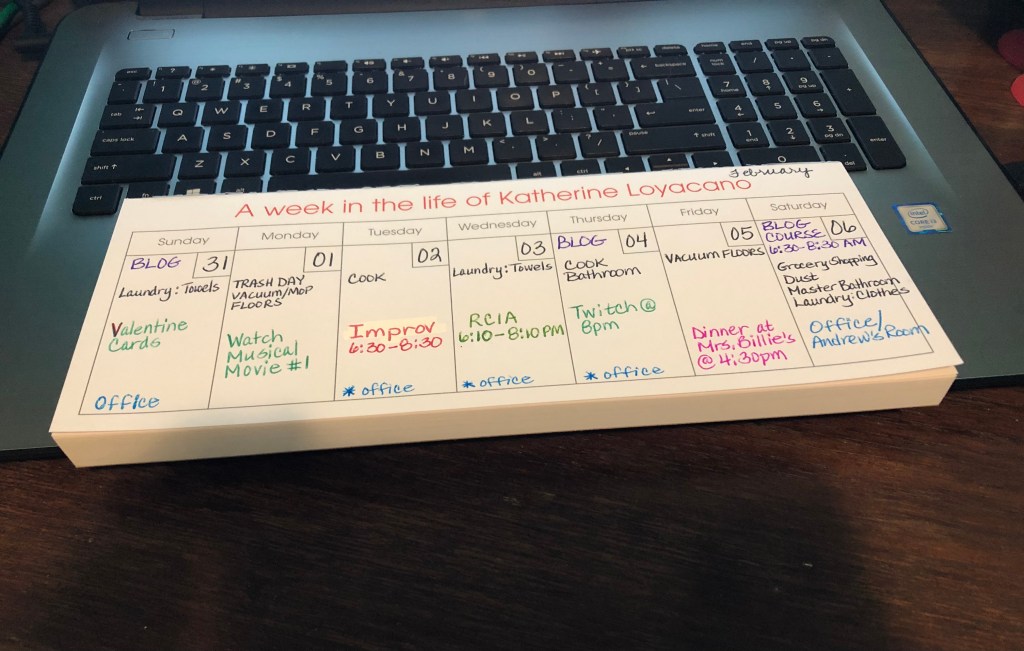 February
A week in the life of Katherine Loyacano
Sunday
31
BLOG
Laundry: Towels
Valentine
Cards
Office
Monday
01
TRASH DAY
VACUUM/MOP
FLOORS
Watch
Musical
Movie #1
Tuesday
02
COOK
Improv
6:30-8:30
* office
Wednesday
03
Laundry: Towels
RCIA
6:10-8:10PM
* office
Thursday
BLOG
04
COOK
Bathroom
Twitch @
8pm
* office
Friday
05
VACUUM FLOORS
Dinner at
Mrs. Billie's
@ 4:30pm
Saturday
06
BLOG
COURSE
6:30-8:30 AM
Grocery Shopping
Dust
Master Bathroom
Laundry: Clothes
Office/
Andrew's Room
intel
CORE i7
tab
caps lock
shift
ctrl
fn
alt
ctrl
Q W E R T Y U I O P
A S D F G H J K L
Z X C V B N M
backspace
enter
pause
shift
enter